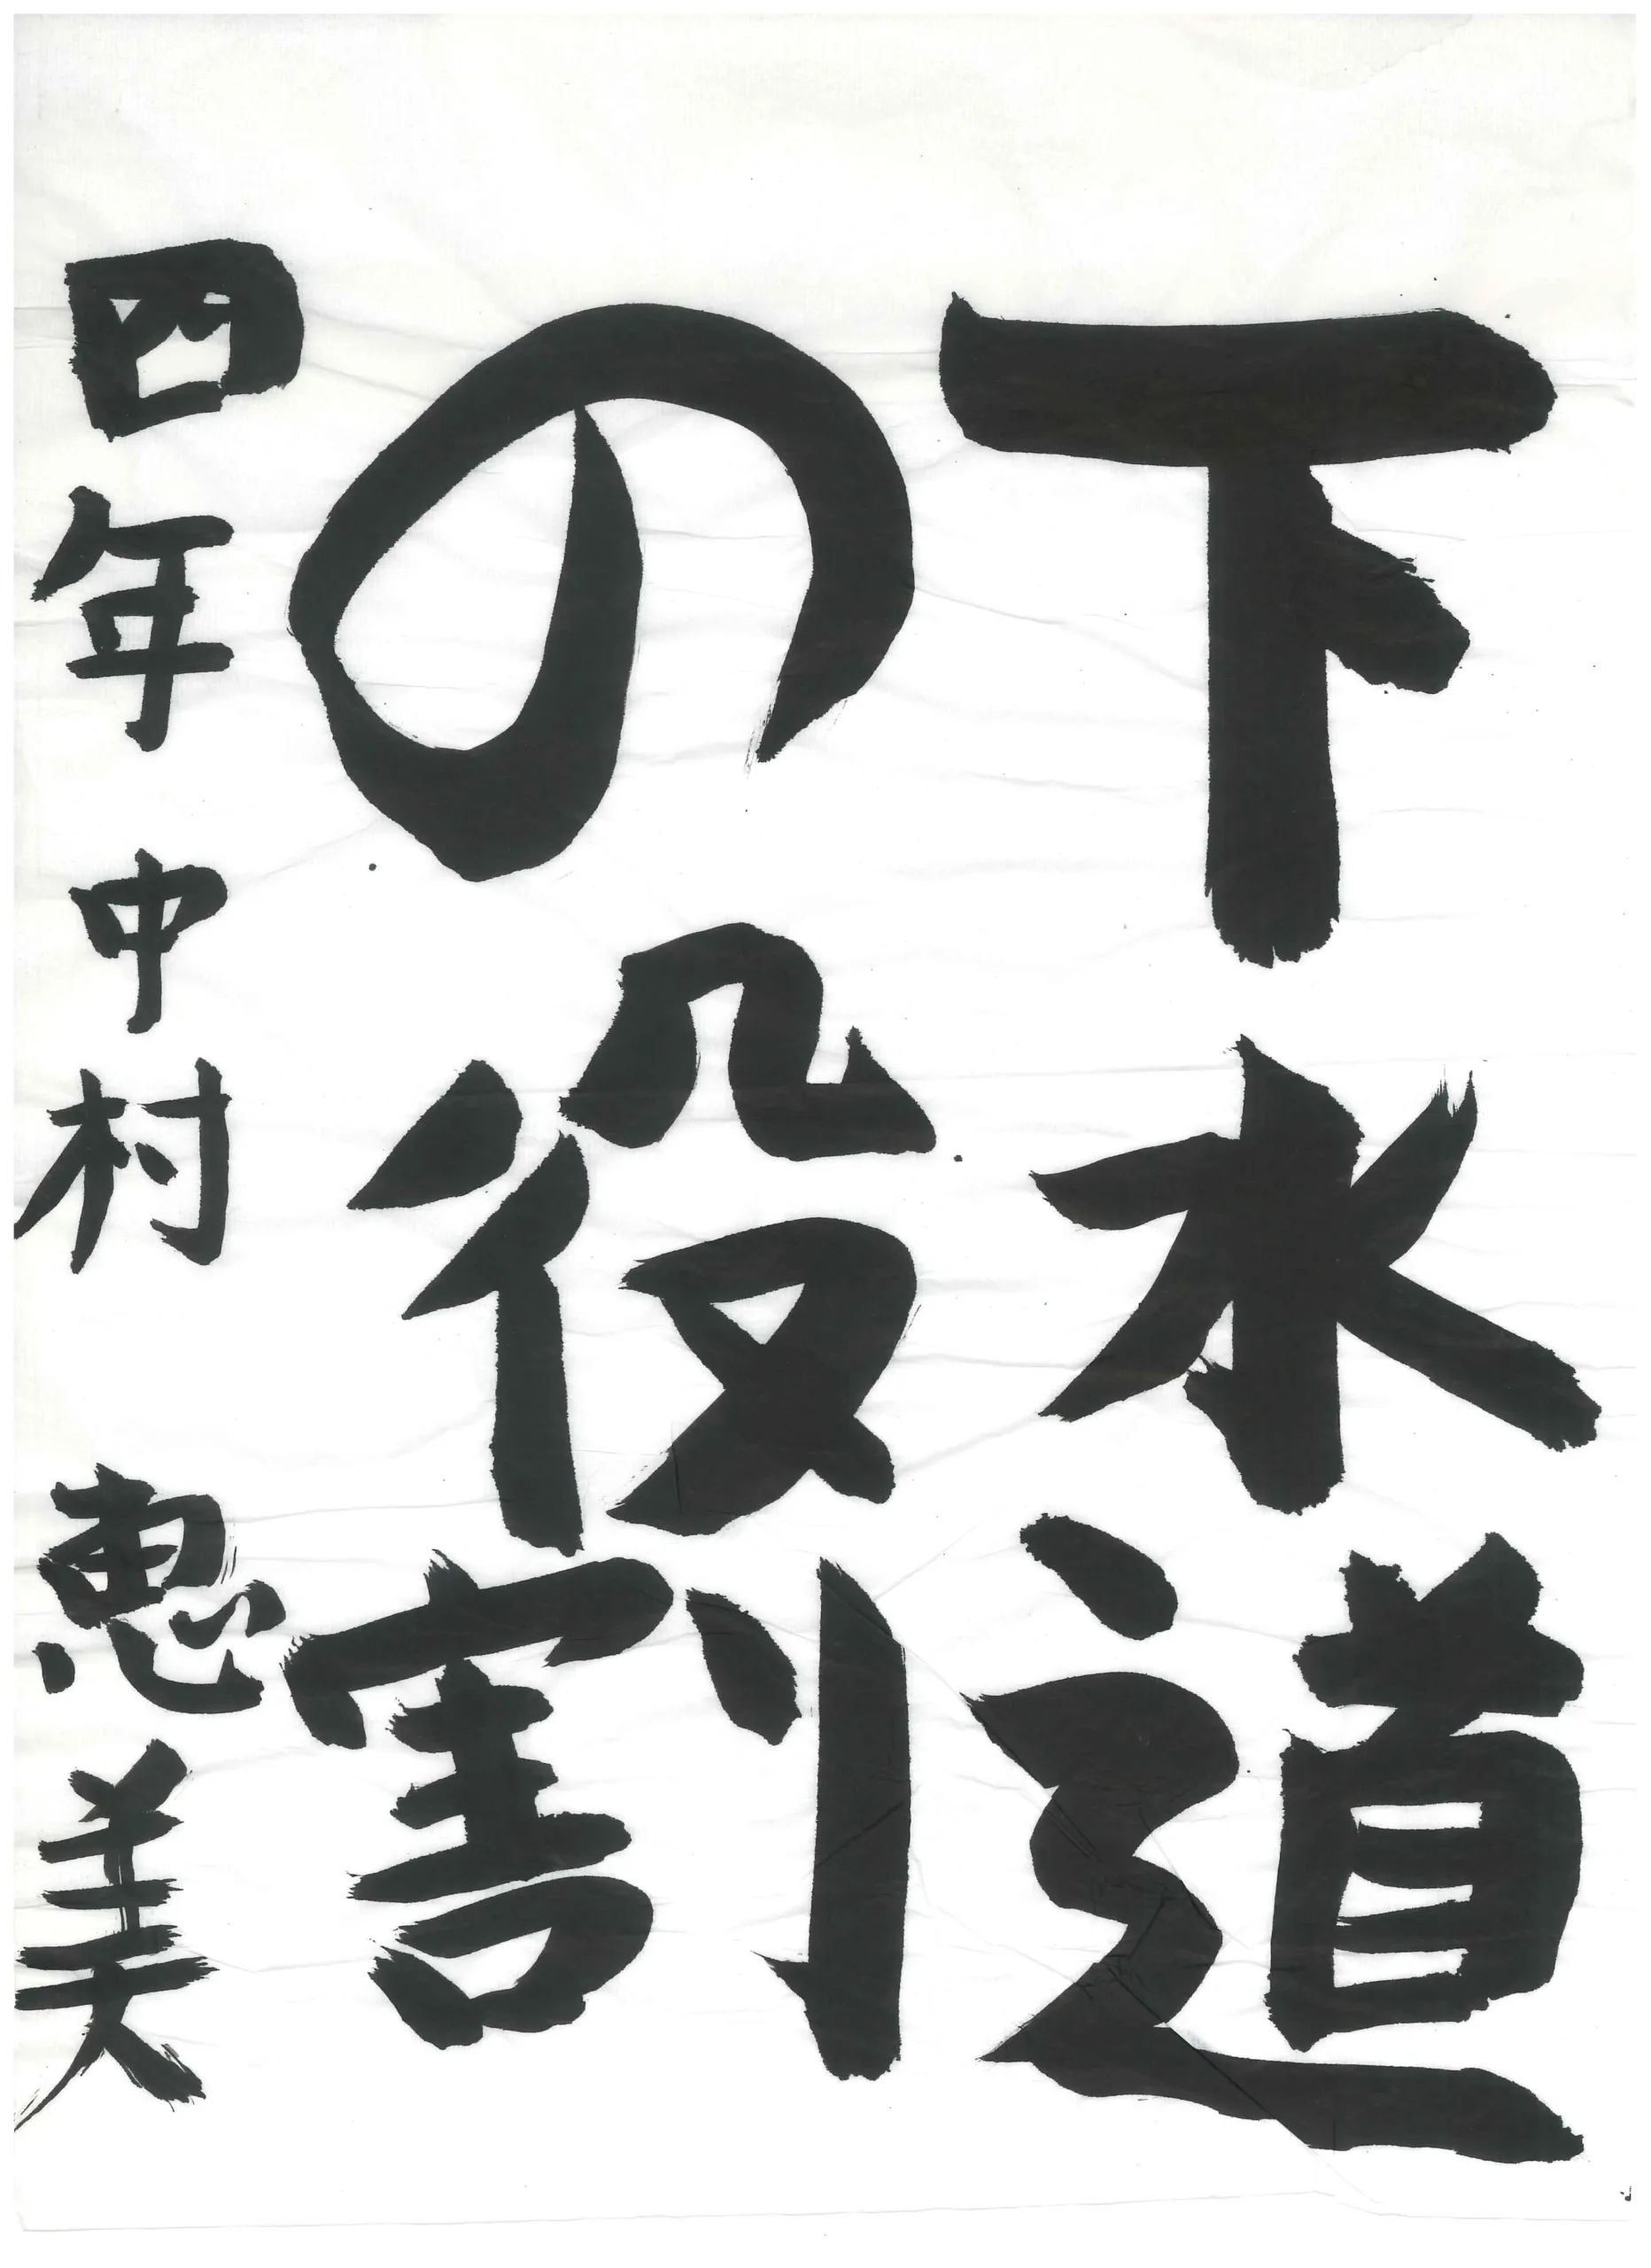 下水道
の役割
四年 中村 恵美